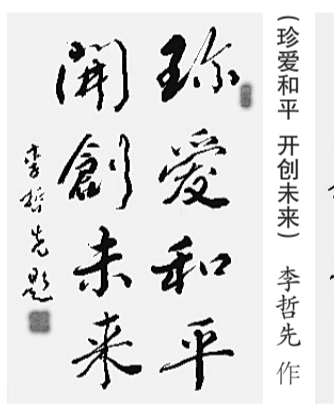 珍愛和平
開創未来
李哲先題
（珍爱和平 开创未来） 李哲先 作